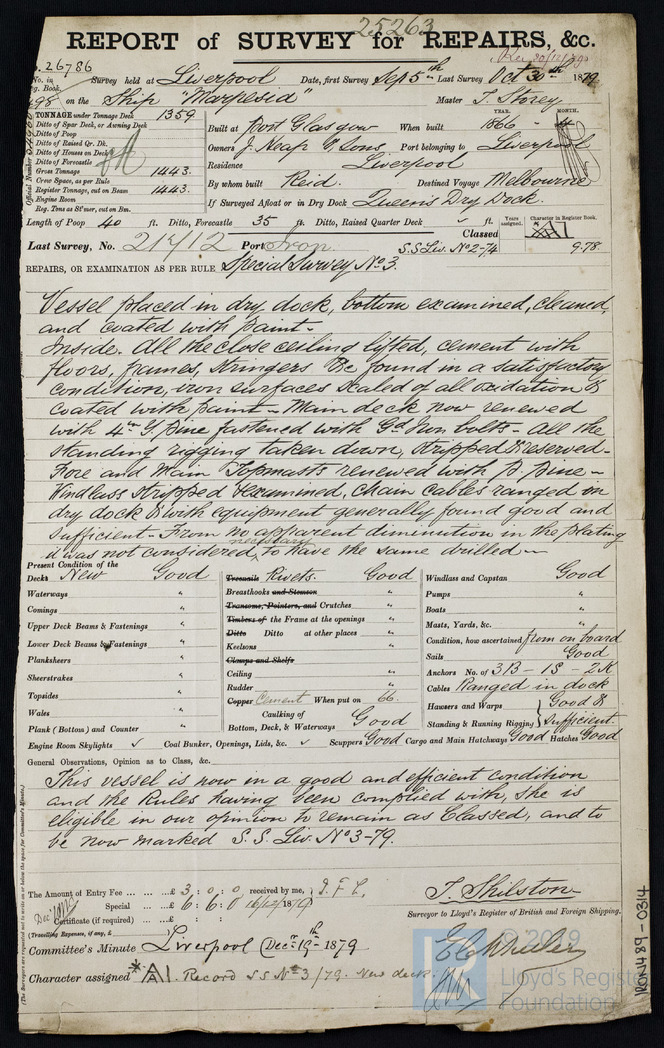 25263
REPORT of SURVEY for REPAIRS, &c.
26786
No. in Reg. Book. Survey held at Liverpool Date, first Survey Sep 5th Last Survey Oct 30th 1879
498 on the Ship "Marpesia" Master T. Storey
TONNAGE under Tonnage Deck 1359
Ditto of Spar Deck, or Awning Deck
Ditto of Poop
Ditto of Raised Qr. Dk.
Ditto of Houses on Deck
Ditto of Forecastle
Gross Tonnage 1443
Crew Space, as per Rule
Register Tonnage, cut on Beam 1443
Engine Room
Reg. Tons as St'mer, cut on Bm.
Official Number
YEAR. MONTH.
Built at Port Glasgow When built 1866 - 4
Owners J. Heap & Sons Port belonging to Liverpool
Residence Liverpool
By whom built Reid. Destined Voyage Melbourne
If Surveyed Afloat or in Dry Dock Queens Dry Dock.
Length of Poop 40 ft. Ditto, Forecastle 35 ft. Ditto, Raised Quarter Deck ✓ ft.
Classed Years assigned. Character in Register Book. A1
Last Survey, No. 21712 Port Iron S.S. Liv. No 2-74 9.78
REPAIRS, OR EXAMINATION AS PER RULE Special Survey No 3.
Vessel placed in dry dock, bottom examined, cleaned,
and coated with paint -
Inside. All the close ceiling lifted, cement with
floors, frames, stringers &c found in a satisfactory
condition, iron surfaces scaled of all oxidation &
coated with paint - Main deck now renewed
with 4 in Y. pine fastened with Gd Iron bolts - All the
standing rigging taken down, stripped & reserved -
Fore and Main Topmasts renewed with P. pine -
Windlass stripped & examined, chain cables ranged in
dry dock & with equipment generally found good and
sufficient - From no apparent diminution in the plating
it was not considered necessary to have the same drilled -
Present Condition of the
Decks New Good
Waterways "
Comings "
Upper Deck Beams & Fastenings "
Lower Deck Beams & Fastenings "
Planksheers "
Sheerstrakes "
Topsides "
Wales "
Plank (Bottom) and Counter "
Treenails Rivets. Good
Breasthooks and Stemson "
Transoms, Pointers, and Crutches "
Timbers of the Frame at the openings "
Ditto Ditto at other places "
Keelsons "
Clamps and Shelfs
Ceiling "
Rudder "
Copper Cement When put on 66.
Caulking of
Bottom, Deck, & Waterways Good
Windlass and Capstan Good
Pumps "
Boats "
Masts, Yards, &c. "
Condition, how ascertained from on board
Sails Good
Anchors No. of 3B - 1S - 2K
Cables Ranged in dock
Hawsers and Warps Good &
Standing & Running Rigging Sufficient
Engine Room Skylights ✓ Coal Bunker, Openings, Lids, &c. ✓ Scuppers Good Cargo and Main Hatchways Good Hatches Good
General Observations, Opinion as to Class, &c.
This vessel is now in a good and efficient condition
and the Rules having been complied with, she is
eligible in our opinion to remain as Classed, and to
be now marked S. S. Liv. No 3-79.
The Amount of Entry Fee £ 3 : 0 : 0 received by me, J. F. L.
Special £ 6 : 6 : 0 16/12/1879
Certificate (if required) £ : :
(Travelling Expenses, if any, £ )
T. Shilston
Surveyor to Lloyd's Register of British and Foreign Shipping.
Committee's Minute Liverpool Decr 19th 1879
Character assigned *A1. Record S S No 3/79. New deck.
© 2019
Lloyd's Register
Foundation
IRON489-0314